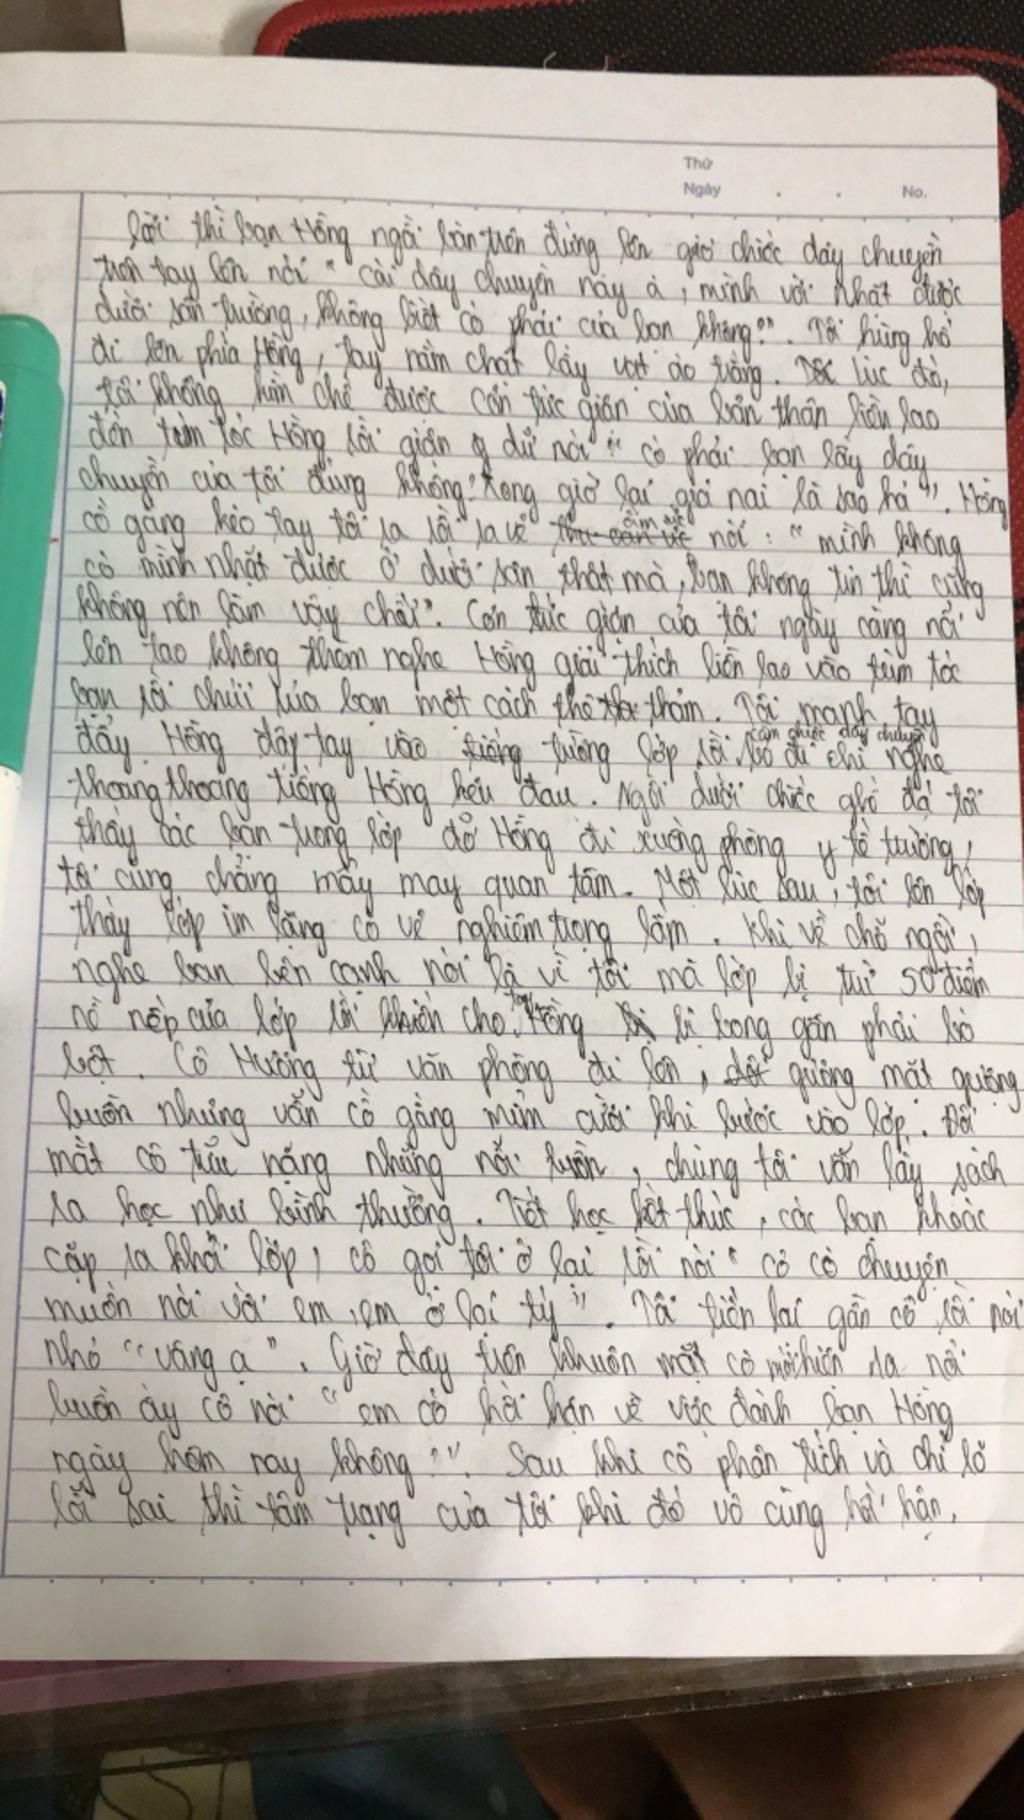 Thứ
Ngày . . No.
lời thì bạn Hồng ngồi bàn trên đứng lên giơ chiếc dây chuyền
trên tay lên nói " cái dây chuyền này à, mình với nhặt được
dưới sân trường, không biết có phải của bạn không?". Tôi hùng hổ
đi lên phía Hồng, tay nắm chặt lấy vạt áo trắng. lúc đó,
tôi không kìm chế được cơn tức giận của bản thân liền lao
đến túm tóc Hồng rồi giận dữ nói " có phải bạn lấy dây
chuyền của tôi đúng không? Xong giờ lại giả nai là sao hả". Hồng
cố gắng kéo tay tôi ra rồi ra vẻ ấm ức nói : " mình không
có mình nhặt được ở dưới sân thật mà, bạn không tin thì cũng
không nên làm vậy chứ". Cơn tức giận của tôi ngày càng nổi
lên tao không thèm nghe Hồng giải thích liền lao vào túm tóc
bạn rồi chửi rủa bạn một cách thô thảm. Tôi mạnh tay
đẩy Hồng đập tay vào tường lớp rồi cầm chiếc dây chuyền bỏ đi chỉ nghe
thoang thoang tiếng Hồng kêu đau. Ngồi dưới chiếc ghế đá tôi
thấy các bạn trong lớp đỡ Hồng đi xuống phòng y tế trường,
tôi cũng chẳng mấy may quan tâm. Một lúc sau, tôi lên lớp
thấy lớp im lặng có vẻ nghiêm trọng lắm. Khi về chỗ ngồi,
nghe bạn bên cạnh nói là vì tôi mà lớp bị trừ 50 điểm
nề nếp của lớp rồi khiến cho tay Hồng bị bong gân phải bó
bột. Cô Hương từ văn phòng đi lên, gương mặt gượng
buồn nhưng vẫn cố gắng mỉm cười khi bước vào lớp. Đôi
mắt cô trĩu nặng những nỗi buồn, chúng tôi vẫn lấy sách
ra học như bình thường. Tiết học kết thúc, các bạn khoác
cặp ra khỏi lớp, cô gọi tôi ở lại rồi nói " cô có chuyện
muốn nói với em, em ở lại tý". Tôi tiến lại gần cô rồi nói
nhỏ "vâng ạ". Giờ đây trên khuôn mặt cô mới hiện ra nỗi
buồn ấy cô nói " em có hối hận về việc đánh bạn Hồng
ngày hôm nay không?". Sau khi cô phân tích và chỉ rõ
lỗi sai thì tâm trạng của tôi khi đó vô cùng hối hận,